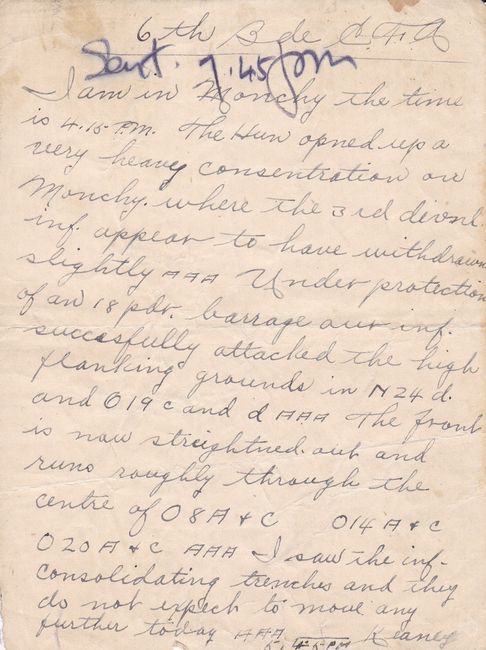 6th Bde C.F.A
Sent. 7.45 pm
I am in Monchy the time
is 4.15 P.M. The Hun opned up a
very heavy consentration on
Monchy. where the 3rd divnl.
inf. appear to have withdrawn
slightly AAA Under protection
of an 18 pdr. barrage our inf.
succssfully attacked the high
flanking grounds in N24d.
and O19 c and d AAA The front
is now streightned out and
runs roughly through the
centre of O8A & C O14 A & C
O20 A & C AAA I saw the inf-
consolidating trenches and they
do not expect to move any
further today AAA Keaney
5.45 PM